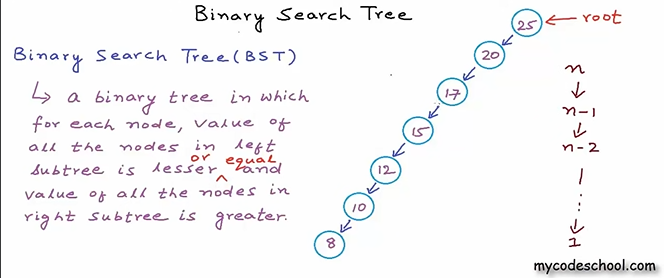 Binary Search Tree
Binary Search Tree (BST)
↳ a binary tree in which
for each node, value of
all the nodes in left
subtree is lesser or equal and
value of all the nodes in
right subtree is greater.
25 ← root
20
17
15
12
10
8
n
↓
n-1
↓
n-2
|
⋮
↓
1
mycodeschool.com